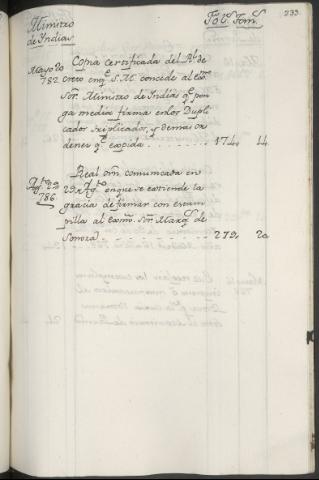 Ministro
de Indias
Fo.s Tom.s
233.
Mayo 20
782
Copia Certificada del R.l de
creto en q.e S. M. concede al Ex.mo
Sor. Ministro de Indias q.e pon
ga media firma en los Dupli
cados triplicados, y demas or
denes q.e expida . . . . . . . . 174. 14
Ag.to 29
786
Real orn. comunicada en
29 Ag.to en que se extiende la
gracia de firmar con estam
pilla al Exmo. Sor. Marq.s de
Sonora . . . . . . . . 279. 20